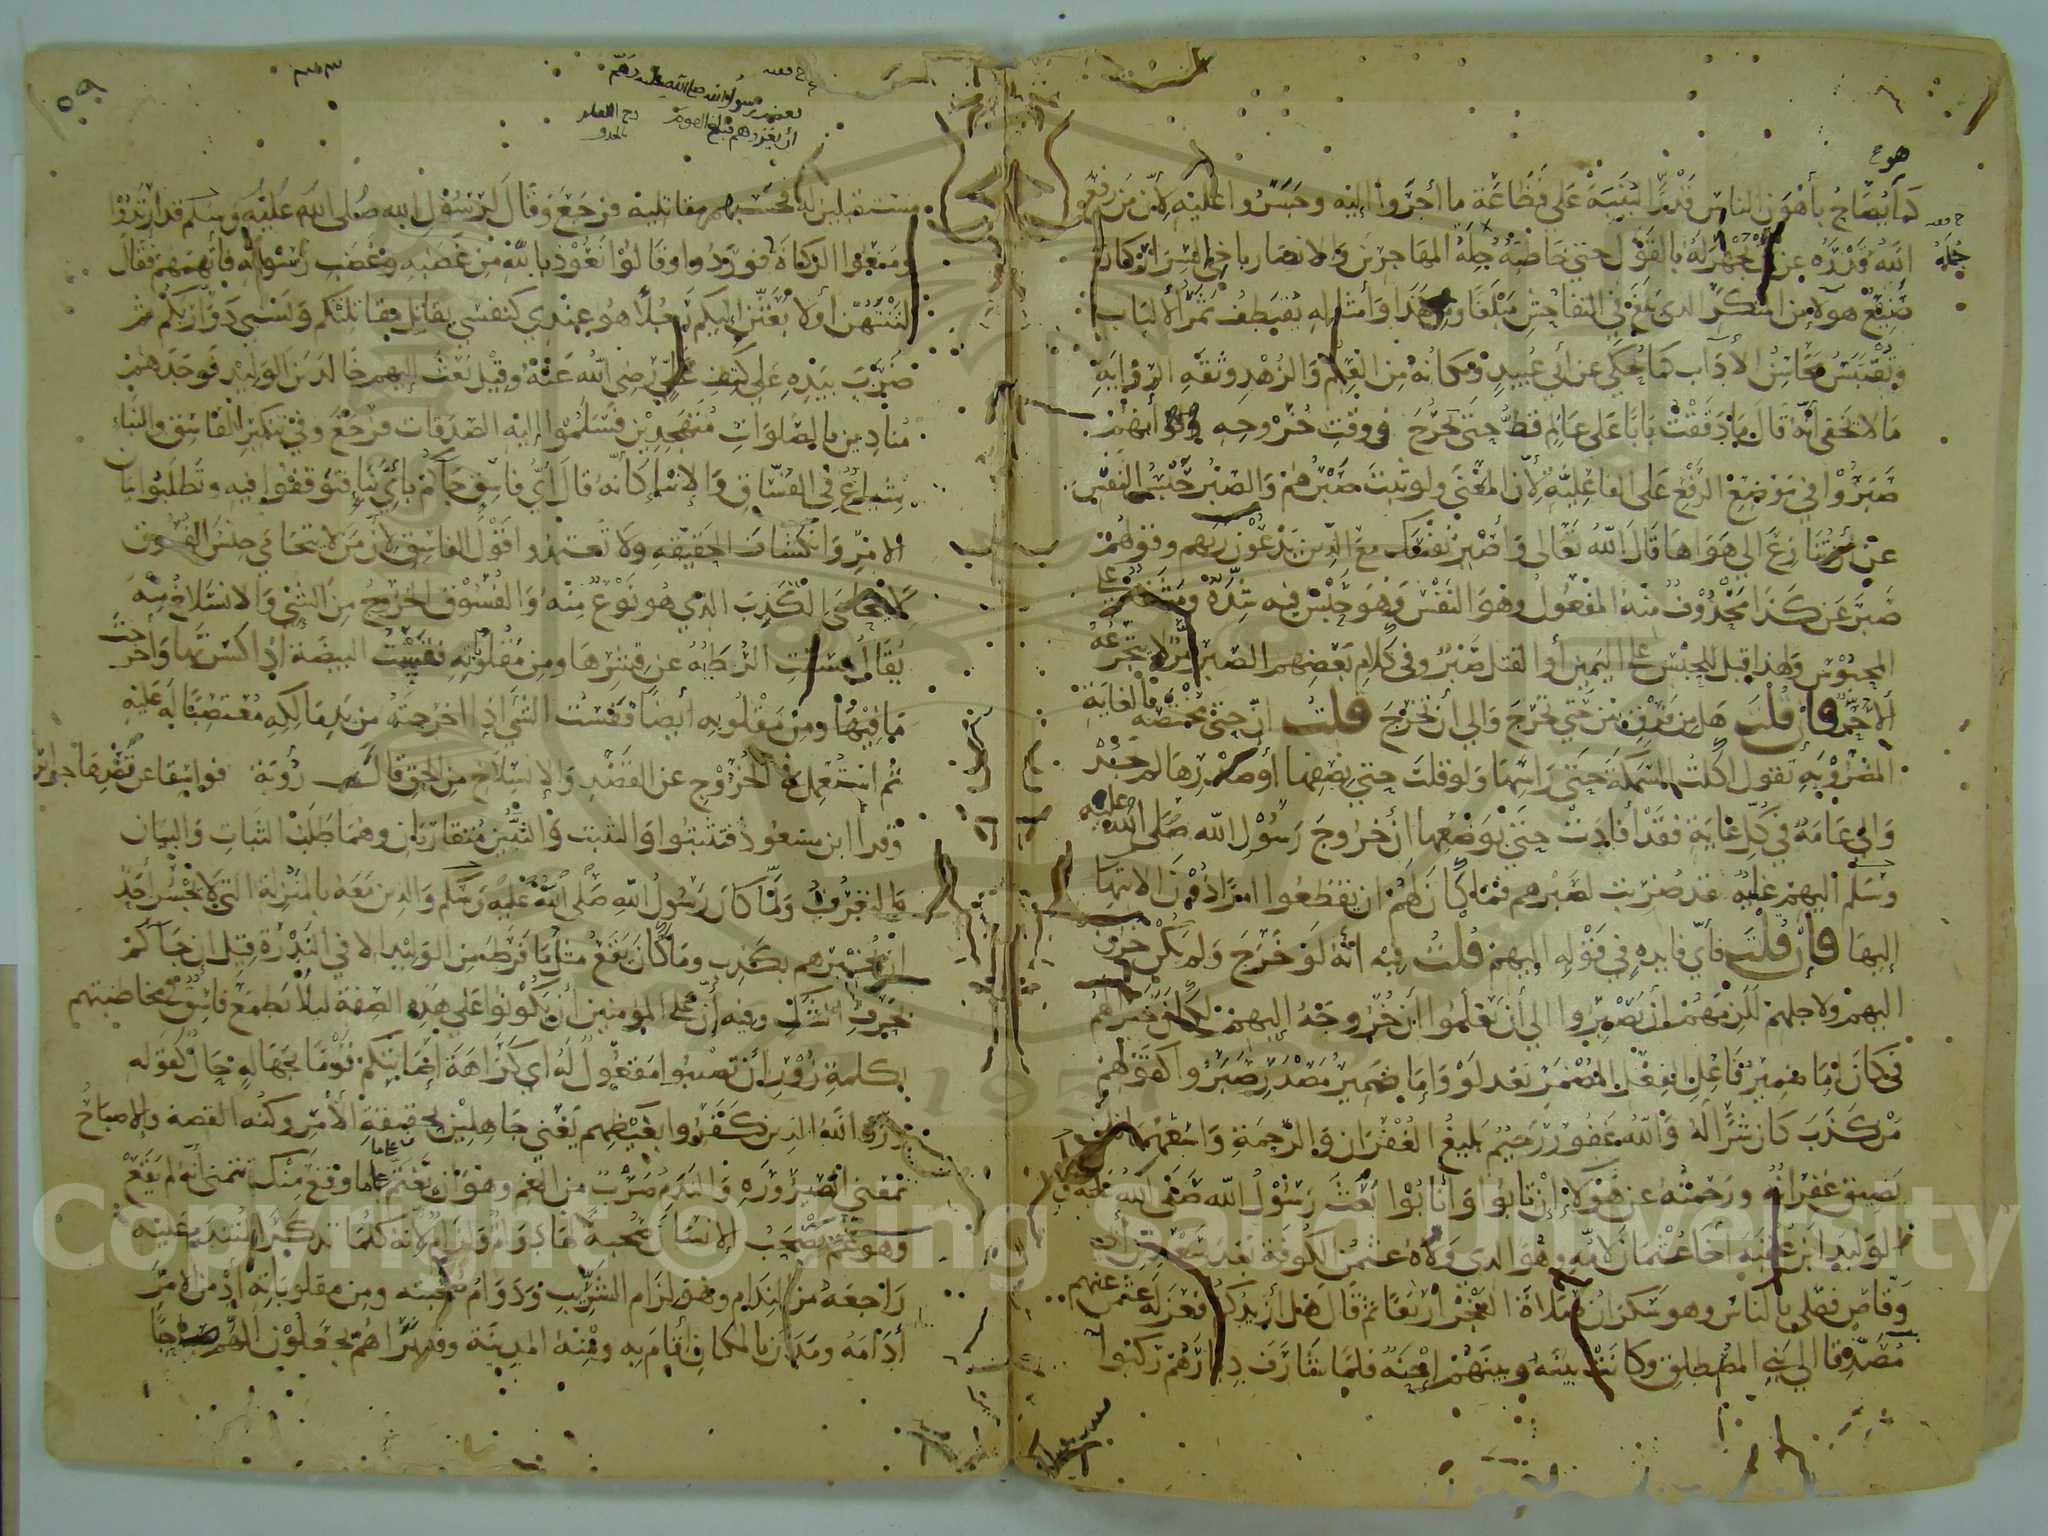 هوع
كما يصاح بأهون الناس قدرا لينبه على فظاعة ما أجروا إليه وجسروا عليه لأن من رفع
الله قدره عن أن يجهر له بالقول حتى خاطبه جلة المهاجرين والانصار باخى السرار كان
جملة
صنيع هولاء من المنكر الذى بلغ في التفاحش مبلغا ومن هذا وأمثاله يقتطف ثمر الألباب
وتقتبس محاسن الآداب كما يحكى عن أبي عبيد ومكانه من العلم والزهد وثقة الرواية
مالا يخفى أنه قال ما دققت بابا على عالم قط حتى يخرج في وقت خروجه ولو أنهم
صبروا في موضع الرفع على الفاعلية لأن المعنى ولو ثبت صبرهم والصبر حبس النفس
عن أن تنازع الى هواها قال الله تعالى واصبر نفسك مع الذين يدعون ربهم وقولهم
صبر عن كذا محذوف منه المفعول وهو النفس وهو حبس فيه شدة ومشقة على
المحبوس ولهذا قيل للحبس على اليمين أو القتل صبر وفي كلام بعضهم الصبر مر لا يتجرعه
ألا حر فان قلت هل من فرق بين حتى تخرج والى أن تخرج قلت ان حتى مختصة بالغاية
المضروبة تقول اكلت السمكة حتى راسها ولو قلت حتى نصفها أو صدرها لم يجز
والى عامة في كل غاية فقد أفادت حتى بوضعها أن خروج رسول الله صلى الله عليه
وسلم اليهم غاية قد ضربت لصبرهم فما كان لهم ان يقطعوا امرا دون الانتهاء
إليها فإن قلت فأي فايدة في قوله اليهم قلت فيه أنه لو خرج ولم يكن خروجه
اليهم ولاجلهم للزمهم أن يصبروا الى أن يعلموا أن خروجه إليهم لكان خيرا لهم
في كان إما ضمير فاعل الفعل المضمر بعد لو وإما ضمير مصدر صبروا كقولهم
من كذب كان شرا له والله غفور رحيم بليغ الغفران والرحمة واسعهما فلن
يضيق غفرانه ورحمته عن هؤلاء إن تابوا وأنابوا بعث رسول الله صلى الله عليه
الوليد ابن عقبة أخا عثمان لامه وهو الذى ولاه عثمن الكوفة بعد سعد بن أبي
وقاص فصلى بالناس وهو سكران صلاة الفجر أربعا ثم قال هل أزيدكم فعزله عثمن عنهم
مصدقا الى بني المصطلق وكانت بينه وبينهم إحنة فلما شارف ديارهم ركبوا
٥٩
مستقبلين له فحسبهم مقاتليه فرجع وقال لرسول الله صلى الله عليه وسلم قد ارتدوا
ومنعوا الزكاة فوردوا وقالوا نعوذ بالله من غضبه وغضب رسوله فاتهمهم فقال
لتنتهن أو لأبعثن إليكم رجلا هو عندي كنفسي يقاتل مقاتلتكم ويسبي ذراريكم ثم
ضرب بيده على كتف علي رضى الله عنه وقيل بعث إليهم خالد بن الوليد فوجدهم
منادين بالصلوات متهجدين فسلموا إليه الصدقات فرجع وفي تنكير الفاسق والنبأ
شياع في الفساق والانبا كأنه قال أي فاسق جاكم بأي نبأ فتوقفوا فيه وتطلبوا بيان
الامر وانكشاف الحقيقة ولا تعتمدوا قول الفاسق لأن من لا يتحامى جنس الفسوق
لا يتحامى الكذب الذي هو نوع منه والفسوق الخروج من الشي والانسلاخ منه
يقال فسقت الرطبة عن قشرها ومن مقلوبه فقست البيضة إذا كسرتها وأخرجت
ما فيها ومن مقلوبه أيضا قفست الشي إذا اخرجته من يد مالكه مغتصبا له عليه
ثم استعمل في الخروج عن القصد والانسلاخ من الحق قال رؤبة فواسقا عن قصدها جوائرا
وقرأ ابن مسعود فتثبتوا والتثبت والتبين متقاربان وهما طلب الثبات والبيان
والتعرف ولما كان رسول الله صلى الله عليه وسلم والذين معه بالمنزلة التي لا يجسر أحد
ان يخبرهم بكذب وما كان يقع مثل ما فرط من الوليد الا في الندرة قيل إن جاكم
بحرف الشك وفيه أن على المومنين أن يكونوا على هذه الصفة ليلا يطمع فاسق في مخاطبتهم
بكلمة زور أن تصيبوا مفعول له أي كراهة إصابتكم قوما بجهالة حال كقوله
ورد الله الذين كفروا بغيظهم يعني جاهلين بحقيقة الأمر وكنه القصة والاصباح
بمعنى الصيرورة والندم ضرب من الغم وهو أن تغتم على ما وقع منك تتمنى أنه لم يقع
وهو غم يصحب الانسان صحبة لها دوام ولزام لأنه كلما تذكر المتندم عليه
راجعه من الندام وهو لزام الشريب ودوام صحبته ومن مقلوباته أدمن الامر
أدامه ومدن بالمكان أقام به ومنه المدينة وقد تراهم يجعلون الهم صاحبا